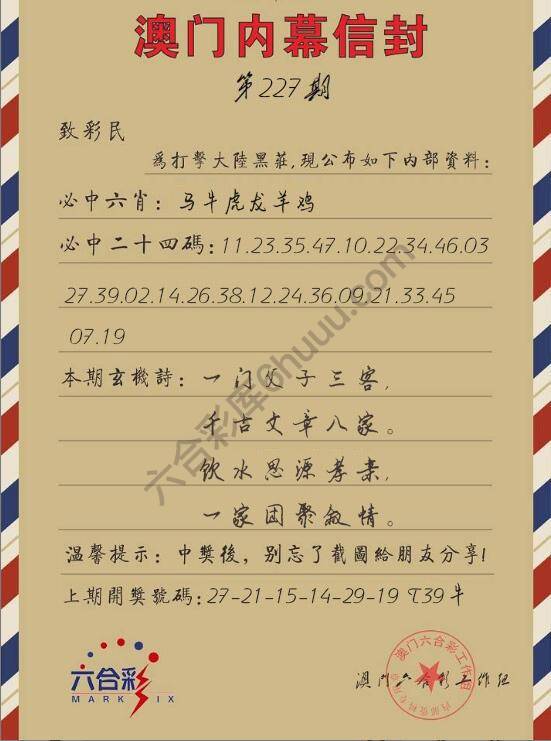 澳门内幕信封
第227期
致彩民
為打擊大陸黑莊,現公布如下内部資料:
必中六肖: 马牛虎龙羊鸡
必中二十四碼: 11.23.35.47.10.22.34.46.03
27.39.02.14.26.38.12.24.36.09.21.33.45
07.19
本期玄機詩: 一门父子三客,
千古文章八家。
饮水思源孝亲,
一家团聚叙情。
温馨提示: 中獎後, 别忘了截圖給朋友分享!
上期開獎號碼:27-21-15-14-29-19 T39牛
六合彩库6huuu.com
六合彩
MARK SIX
澳门六合彩工作组
澳门六合彩工作组